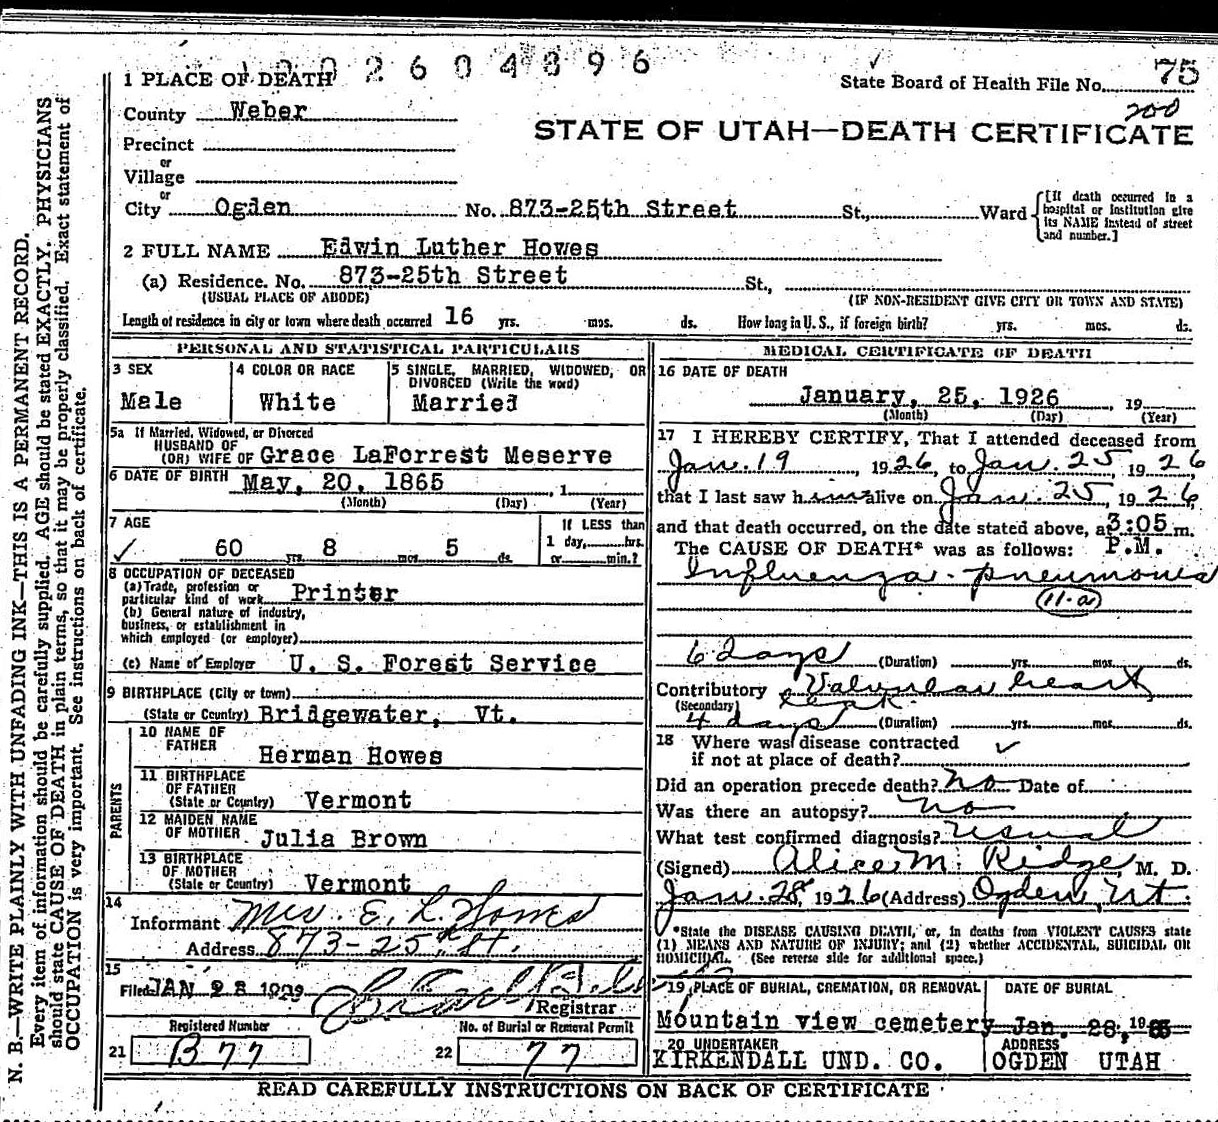 2604896
1 PLACE OF DEATH
State Board of Health File No. 75
200
County Weber
STATE OF UTAH—DEATH CERTIFICATE
Precinct
or
Village
or
City Ogden No. 873-25th Street St., Ward
[If death occurred in a hospital or institution give its NAME instead of street and number.]
2 FULL NAME Edwin Luther Howes
(a) Residence. No. 873-25th Street St.,
(USUAL PLACE OF ABODE) (IF NON-RESIDENT GIVE CITY OR TOWN AND STATE)
Length of residence in city or town where death occurred 16 yrs. mos. ds. How long in U. S., if foreign birth? yrs. mos. ds.
PERSONAL AND STATISTICAL PARTICULARS
3 SEX
Male
4 COLOR OR RACE
White
5 SINGLE, MARRIED, WIDOWED, OR
DIVORCED (Write the word)
Married
5a If Married, Widowed, or Divorced
HUSBAND OF
(OR) WIFE OF Grace LaForrest Meserve
6 DATE OF BIRTH May, 20, 1865 , 1
(Month) (Day) (Year)
7 AGE
60 yrs. 8 mos. 5 ds.
If LESS than
1 day, hrs.
or min.?
8 OCCUPATION OF DECEASED
(a) Trade, profession or
particular kind of work Printer
(b) General nature of industry,
business, or establishment in
which employed (or employer)
(c) Name of Employer U. S. Forest Service
9 BIRTHPLACE (City or town)
(State or Country) Bridgewater, Vt.
PARENTS
10 NAME OF
FATHER
Herman Howes
11 BIRTHPLACE
OF FATHER
(State or Country) Vermont
12 MAIDEN NAME
OF MOTHER Julia Brown
13 BIRTHPLACE
OF MOTHER
(State or Country) Vermont
14
Informant Mrs. E. L. Howes
Address 873-25th St.
15
Filed JAN 28
Registrar
Registered Number
21 B77
No. of Burial or Removal Permit
22 77
MEDICAL CERTIFICATE OF DEATH
16 DATE OF DEATH
January, 25, 1926 , 19
(Month) (Day) (Year)
17 I HEREBY CERTIFY, That I attended deceased from
Jan. 19, 1926, to Jan. 25, 1926
that I last saw him alive on Jan. 25, 1926
and that death occurred, on the date stated above, at 3:05 m.
The CAUSE OF DEATH* was as follows: P.M.
Influenza - pneumonia
(11-a)
6 days (Duration) yrs. mos. ds.
Contributory Valvular heart
(Secondary) leak.
4 days (Duration) yrs. mos. ds.
18 Where was disease contracted
if not at place of death?
Did an operation precede death? no Date of
Was there an autopsy? no
What test confirmed diagnosis? usual
(Signed) Alice M. Ridge, M. D.
Jan. 28, 1926 (Address) Ogden, Ut.
*State the DISEASE CAUSING DEATH, or, in deaths from VIOLENT CAUSES state
(1) MEANS AND NATURE OF INJURY; and (2) whether ACCIDENTAL, SUICIDAL OR
HOMICIDAL. (See reverse side for additional space.)
19 PLACE OF BURIAL, CREMATION, OR REMOVAL
Mountain view cemetery
DATE OF BURIAL
Jan. 28, 19
20 UNDERTAKER
KIRKENDALL UND. CO.
ADDRESS
OGDEN UTAH
READ CAREFULLY INSTRUCTIONS ON BACK OF CERTIFICATE
N. B.—WRITE PLAINLY WITH UNFADING INK—THIS IS A PERMANENT RECORD.
Every item of information should be carefully supplied. AGE should be stated EXACTLY. PHYSICIANS
should state CAUSE OF DEATH in plain terms, so that it may be properly classified. Exact statement of
OCCUPATION is very important. See instructions on back of certificate.